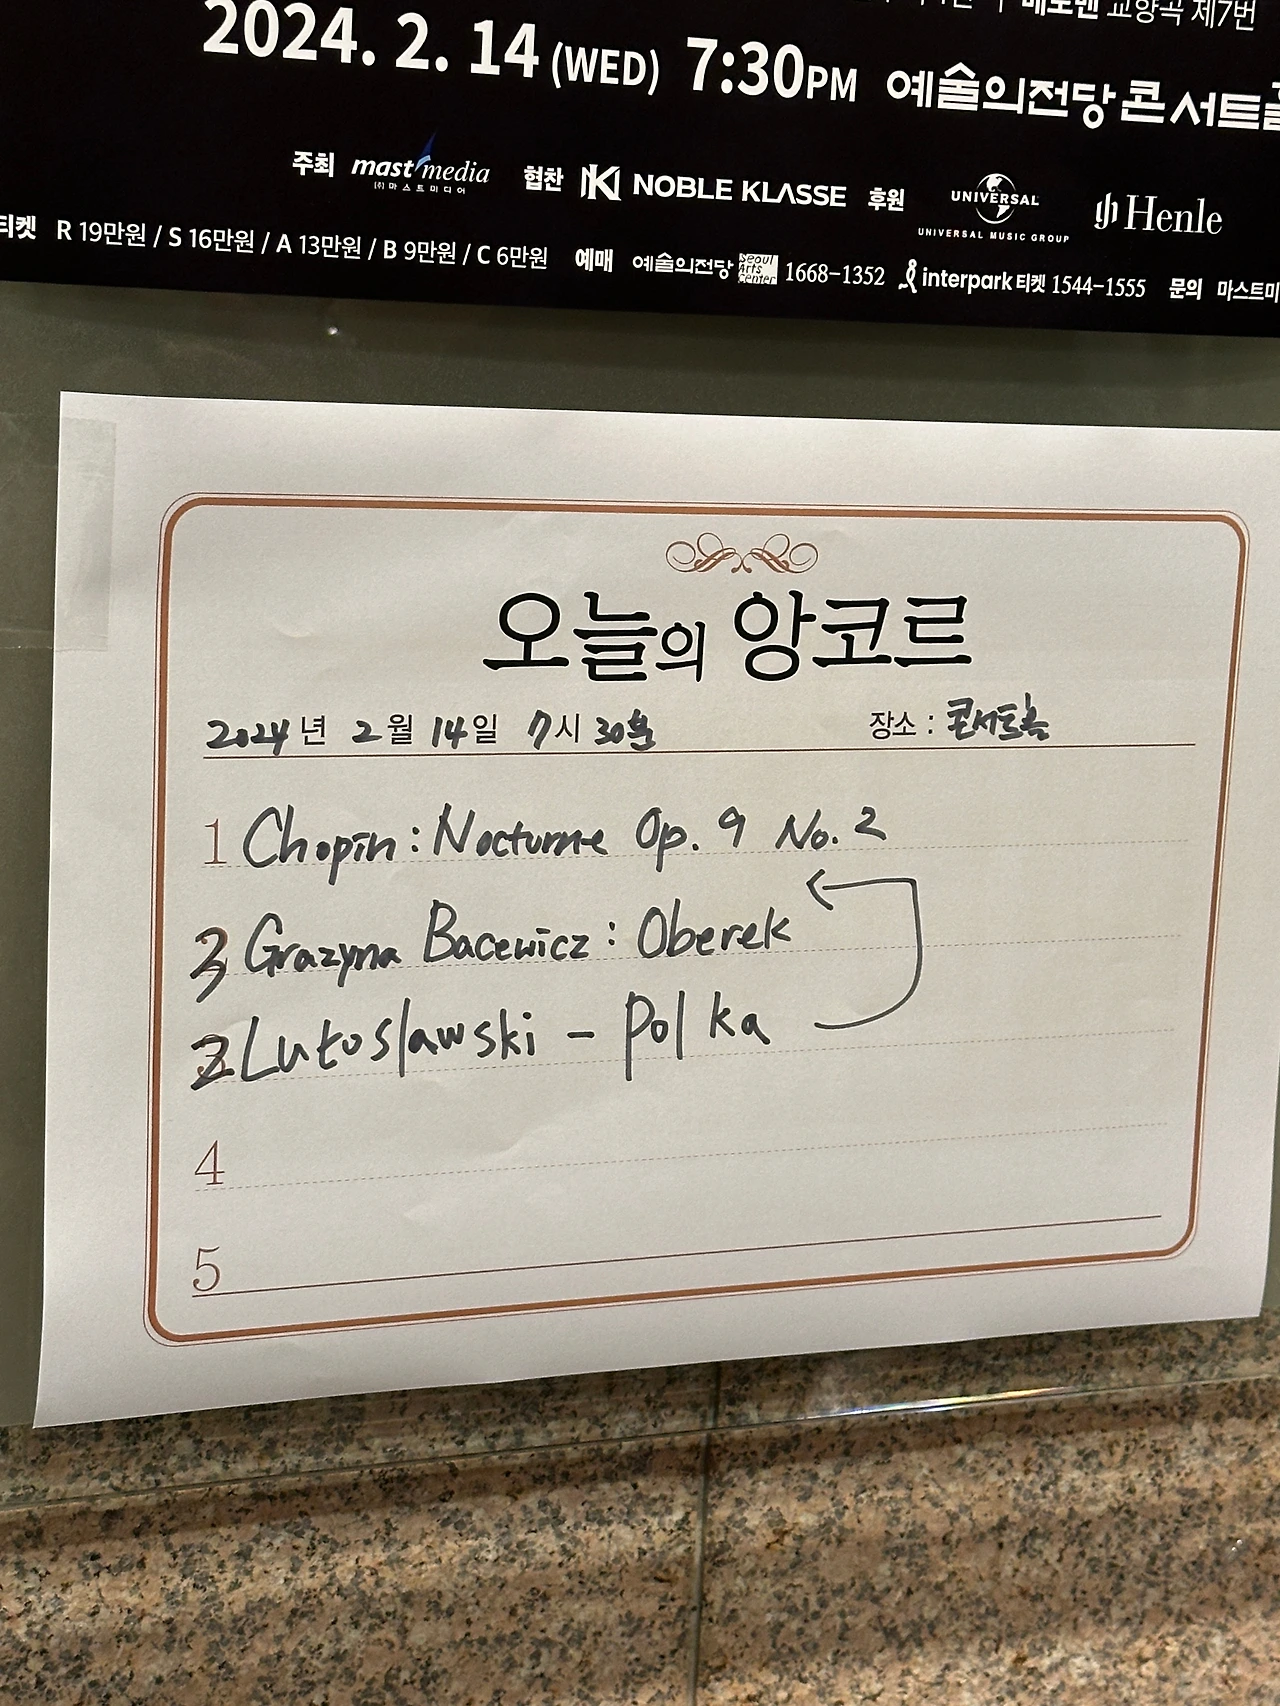 베토벤 교향곡 제7번
2024. 2. 14 (WED) 7:30PM 예술의전당 콘서트홀
주최 mast media (주)마스트미디어 협찬 NK NOBLE KLASSE 후원 UNIVERSAL UNIVERSAL MUSIC GROUP Henle
티켓 R 19만원 / S 16만원 / A 13만원 / B 9만원 / C 6만원 예매 예술의전당 Seoul Arts Center 1668-1352 interpark 티켓 1544-1555 문의 마스트미
오늘의 앙코르
2024년 2월 14일 7시 30분 장소 : 콘서트홀
1 Chopin : Nocturne Op. 9 No. 2
3 Grazyna Bacewicz : Oberek
2 Lutoslawski - Polka
4
5